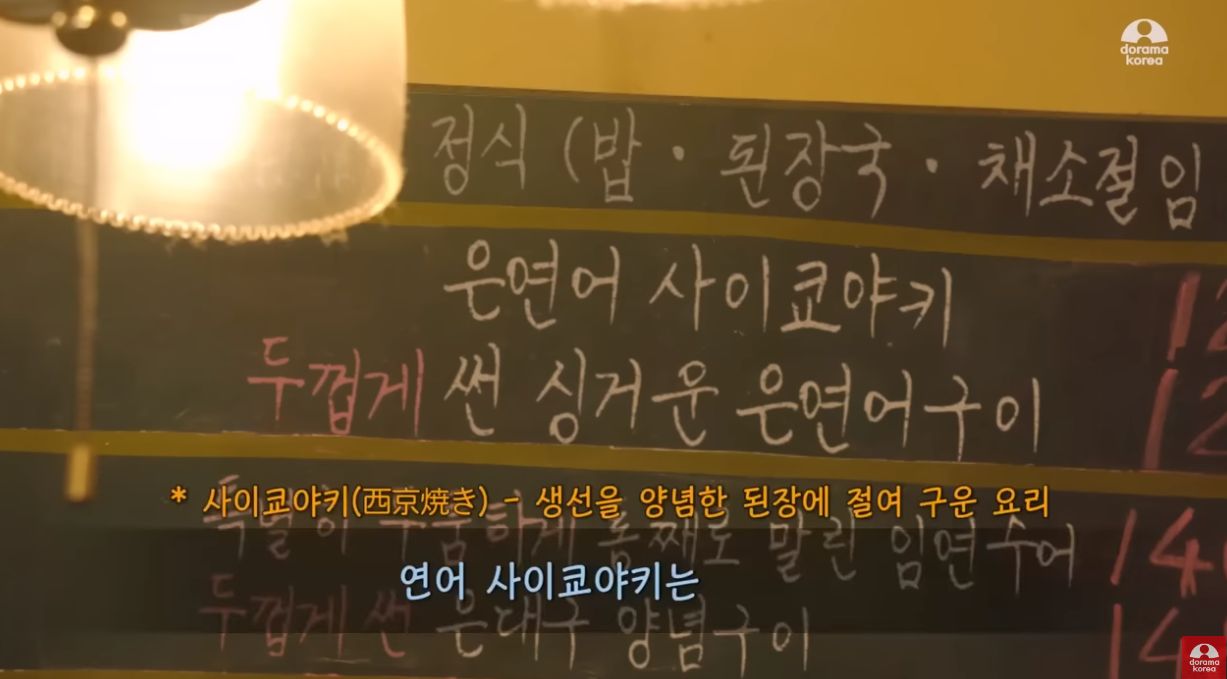 dorama
korea
정식 (밥 · 된장국 · 채소절임
은연어 사이쿄야키
두껍게 썬 싱거운 은연어구이
* 사이쿄야키(西京焼き) - 생선을 양념한 된장에 절여 구운 요리
특별히 두툼하게 통째로 말린 임연수어 14
연어 사이쿄야키는
두껍게 썬 은대구 양념구이 14
dorama
korea